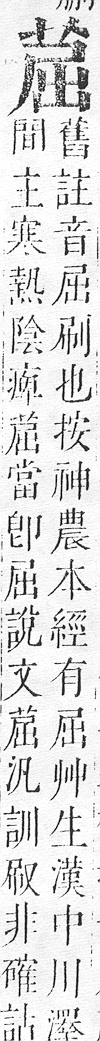 䓛
舊註音屈刷也按神農本經有屈艸生漢中川澤
間主寒熱陰痺䓛當卽屈說文䓛汎訓㕞非確詁